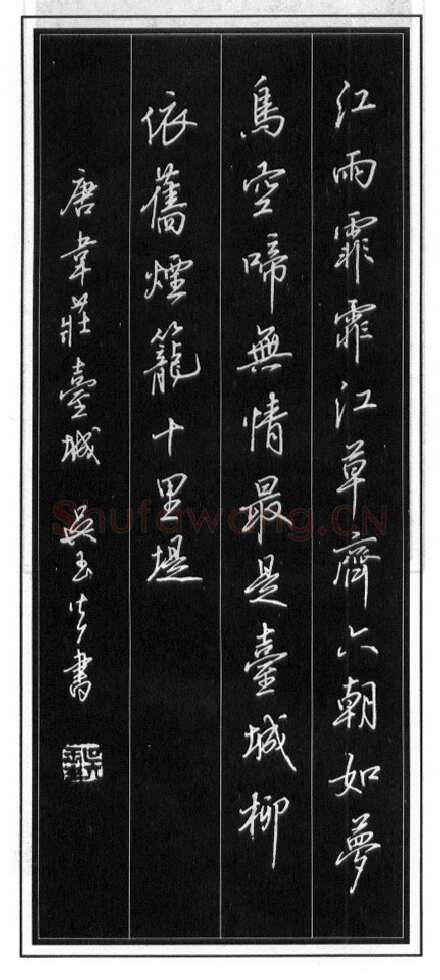 江雨霏霏江草齊六朝如夢
鳥空啼無情最是臺城柳
依舊煙籠十里堤
唐韋莊臺城 吳玉生書
Shufawang.CN